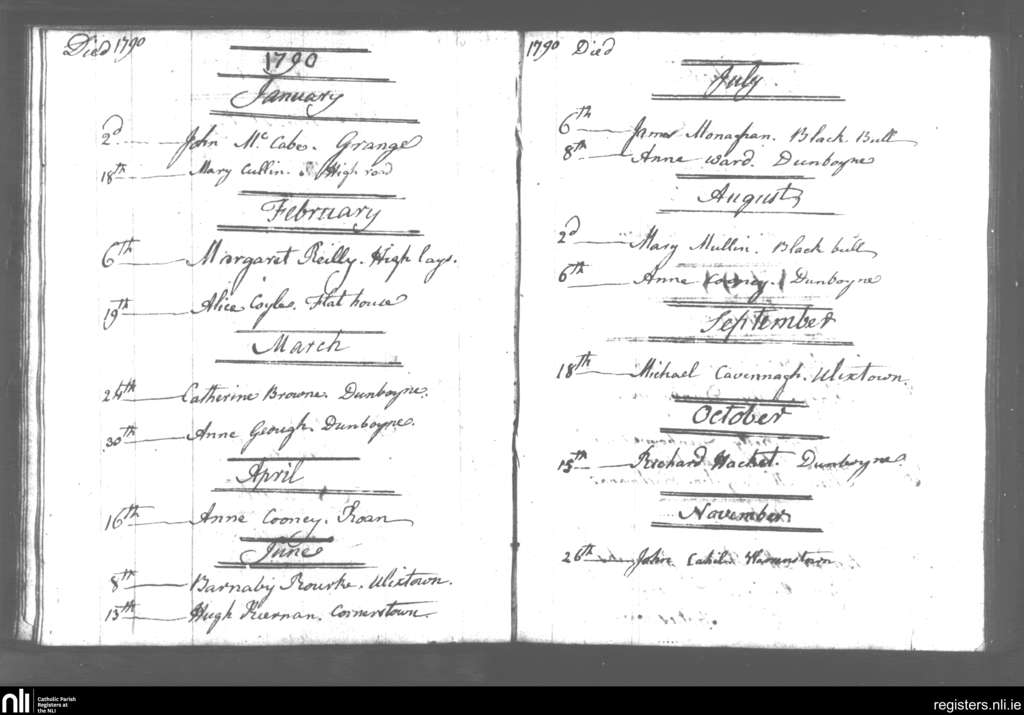 Died 1790
1790
January
2d John Mc Cabe. Grange
18th Mary Cullin. High road
February
6th Margaret Reilly. High lays.
19th Alice Coyle. Flat house
March
24th Catherine Browne. Dunboyne.
30th Anne Geough. Dunboyne.
April
16th Anne Cooney. Roan
June
8th Barnaby Rourke. Ulixtown.
13th Hugh Kiernan. Cornerstown.
1790 Died
July.
6th James Monaghan. Black Bull
8th Anne Ward. Dunboyne
August
2d Mary Mullin. Black bull
6th Anne Cooney. Dunboyne
September
18th Michael Cavennagh. Ulixtown.
October
15th Richard Hacket. Dunboyne.
November
26th John Cahil.
nli Catholic Parish
Registers at
the NLI
registers.nli.ie